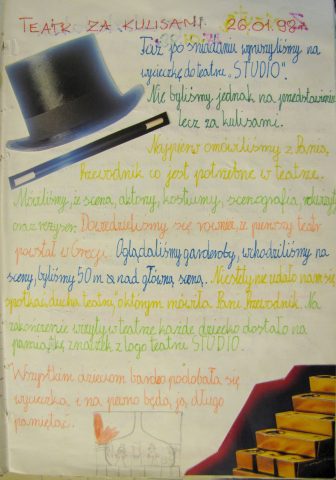 TEATR ZA KULISAMI 26.01.98r
Tuż po śniadaniu wyruszyliśmy na
wycieczkę do teatru „STUDIO".
Nie byliśmy jednak na przedstawieniu
lecz za kulisami.
Najpierw omówiliśmy z Panią
Przewodnik co jest potrzebne w teatrze.
Mówiliśmy, że scena, aktorzy, kostiumy, scenografia,
oraz reżyser. Dowiedzieliśmy się również, że pierwszy teatr
powstał w Grecji. Oglądaliśmy garderoby, wchodziliśmy na
scenę, byliśmy 50 m nad główną sceną. Niestety nie udało nam się
spotkać ducha teatru, o którym mówiła Pani Przewodnik. Na
zakończenie wizyty w teatrze każde dziecko dostało na
pamiątkę znaczek z logo teatru STUDIO.
Wszystkim dzieciom bardzo podobała się
wycieczka, i na pewno będą ją długo
pamiętać.